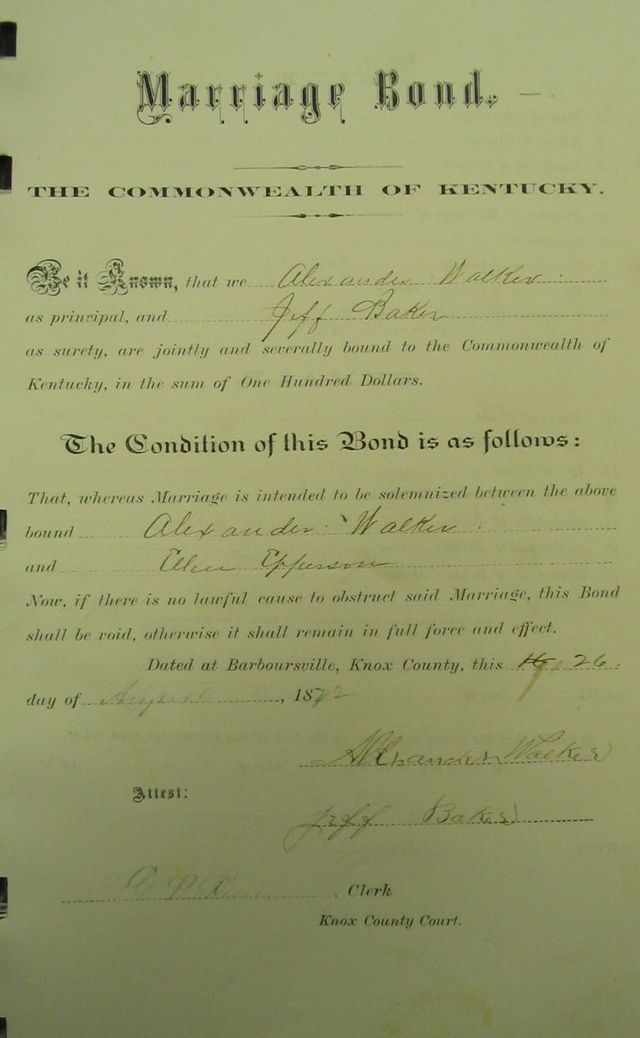 Marriage Bond.
THE COMMONWEALTH OF KENTUCKY.
Be it Known, that we Alexander Walker
as principal, and Jeff Baker
as surety, are jointly and severally bound to the Commonwealth of
Kentucky, in the sum of One Hundred Dollars.
The Condition of this Bond is as follows:
That, whereas Marriage is intended to be solemnized between the above
bound Alexander Walker
and Ellen Epperson
Now, if there is no lawful cause to obstruct said Marriage, this Bond
shall be void, otherwise it shall remain in full force and effect.
Dated at Barboursville, Knox County, this 26
day of August, 1872
Alexander Walker
Attest:
Jeff Baker
Clerk
Knox County Court.